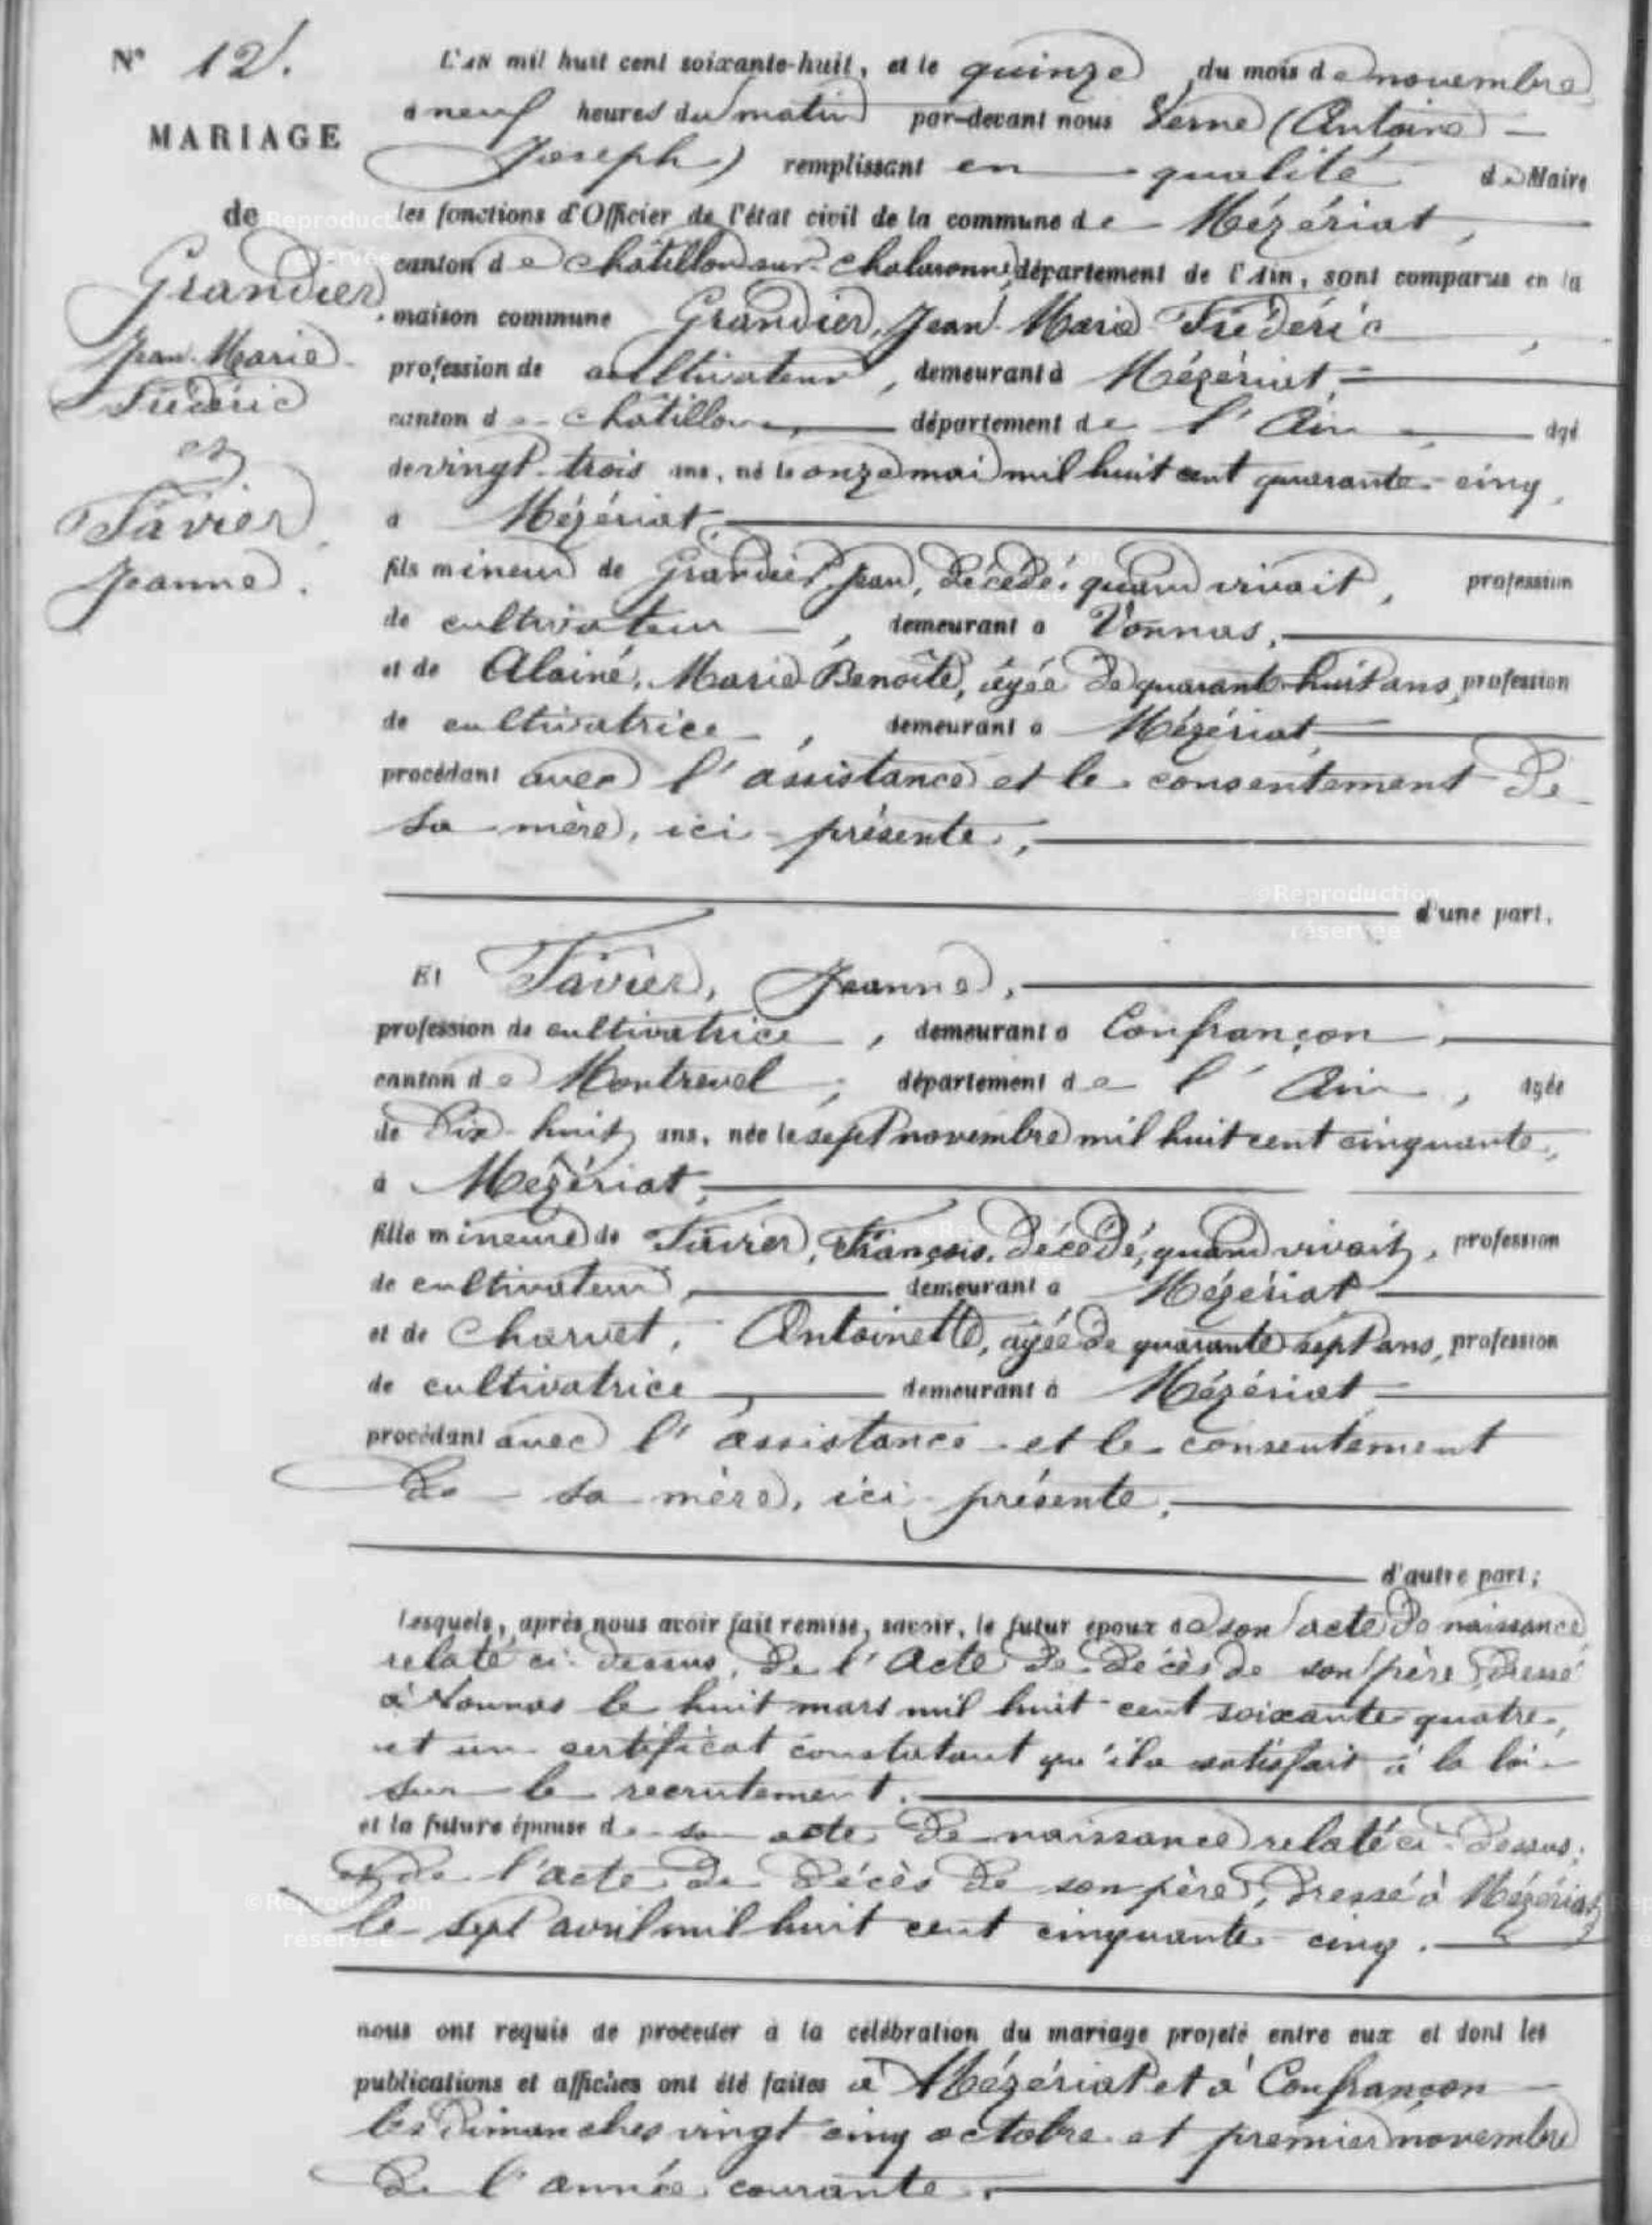 N° 12.
MARIAGE
de
Grandier
Jean-Marie
Frédéric
et
Favier
Jeanne.
L'an mil huit cent soixante-huit, et le quinze du mois de novembre
à neuf heures du matin par-devant nous Verne (Antoine
Joseph) remplissant en qualité de Maire
les fonctions d'Officier de l'état civil de la commune de Mézériat,
canton de Châtillon-sur-Chalaronne, département de l'Ain, sont comparus en la
maison commune Grandier, Jean Marie Frédéric,
profession de cultivateur, demeurant à Mézériat,
canton de Châtillon, département de l'Ain, âgé
de vingt-trois ans, né le onze mai mil huit cent quarante-cinq,
à Mézériat,
fils mineur de Grandier, Jean, décédé, quand vivait, profession
de cultivateur, demeurant à Vonnas,
et de Alainé, Marie Benoîte, âgée de quarante-huit ans, profession
de cultivatrice, demeurant à Mézériat,
procédant avec l'assistance et le consentement de
sa mère, ici présente,
d'une part.
Et Favier, Jeanne,
profession de cultivatrice, demeurant à Confrançon,
canton de Montrevel, département de l'Ain, âgée
de dix-huit ans, née le sept novembre mil huit cent cinquante,
à Mézériat,
fille mineure de Favier, François, décédé, quand vivait, profession
de cultivateur, demeurant à Mézériat
et de Charvet, Antoinette, âgée de quarante-sept ans, profession
de cultivatrice, demeurant à Mézériat
procédant avec l'assistance et le consentement
de sa mère, ici présente,
d'autre part;
Lesquels, après nous avoir fait remise, savoir, le futur époux de son acte de naissance
relaté ci-dessus, de l'acte de décès de son père, dressé
à Vonnas le huit mars mil huit cent soixante quatre,
et un certificat constatant qu'il a satisfait à la loi
sur le recrutement.
et la future épouse de son acte de naissance relaté ci-dessus;
et de l'acte de décès de son père, dressé à Mézériat
le sept avril mil huit cent cinquante-cinq.
nous ont requis de procéder à la célébration du mariage projeté entre eux et dont les
publications et affiches ont été faites à Mézériat et à Confrançon
les dimanches vingt-cinq octobre et premier novembre
de l'année courante.
©Reproduction
réservée